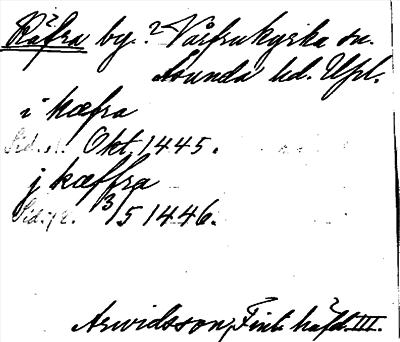 Käfra by. ? Vårfrukyrka sn.
Åsunda hd. Upl.
i kæfra
Sid. 1. Okt. 1445.
j kæffra
Sid. 72. 3/5 1446.
Arwidsson, Finl. häfd. III.